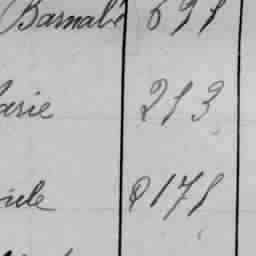 Barnabé 691
arie 213
icle 2171